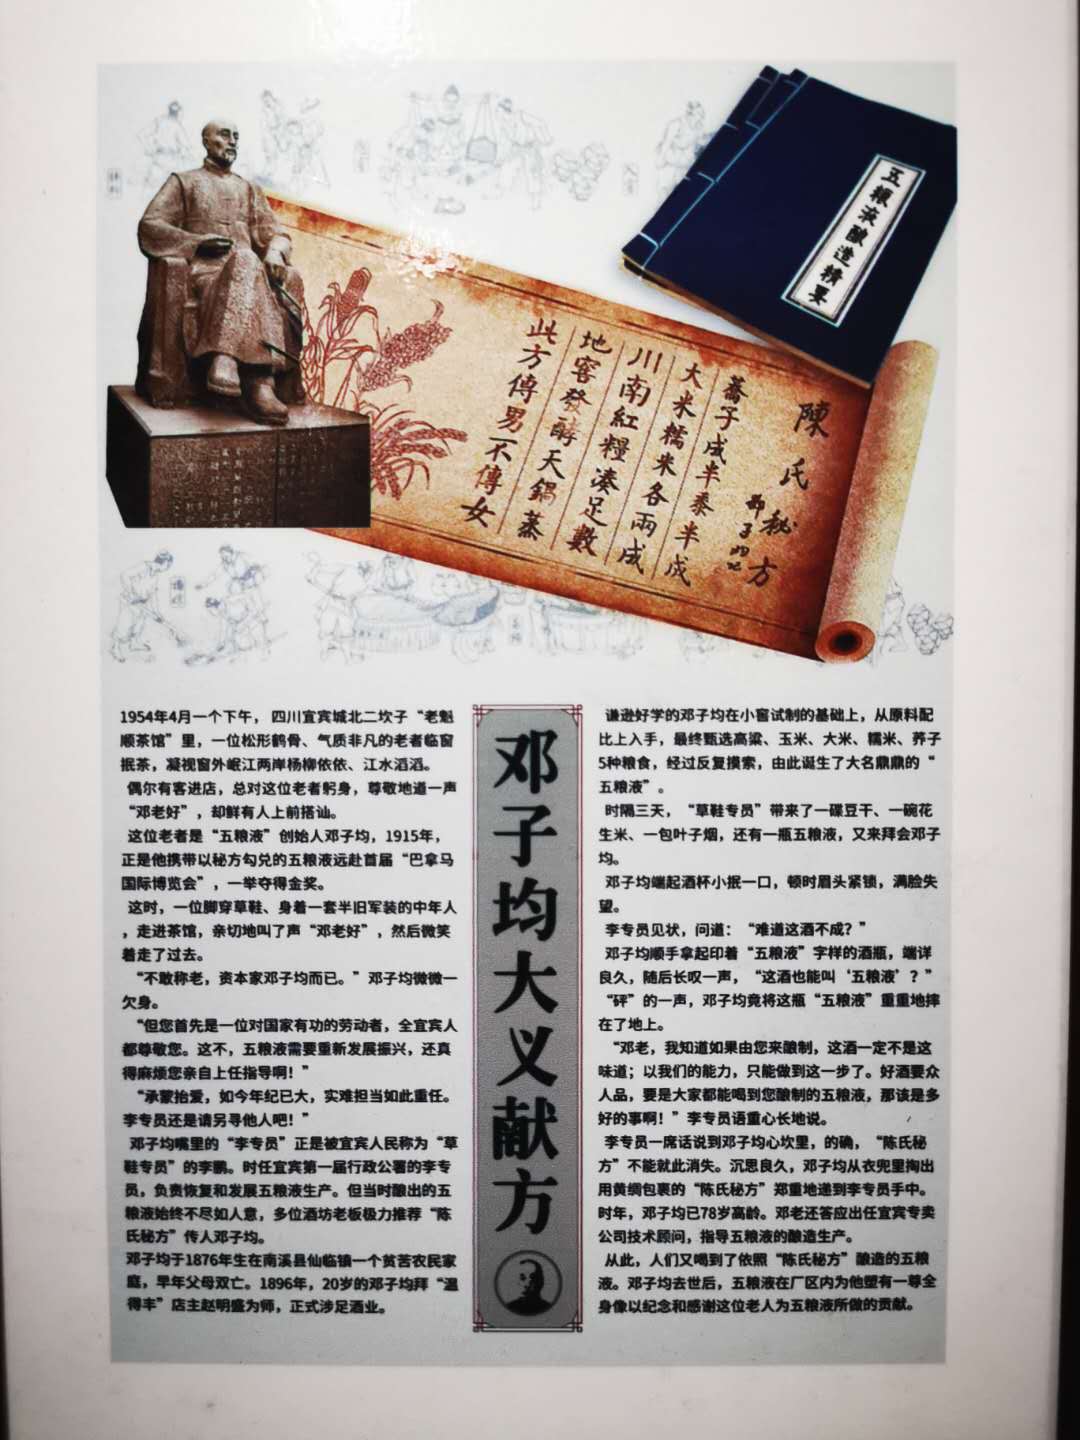 五粮液酿造精要
陳氏秘方
鄧子均记
蕎子成半黍半成
大米糯米各兩成
川南紅糧湊足數
地窖發酵天鍋蒸
此方傳男不傳女
1954年4月一个下午，四川宜宾城北二坎子“老魁
顺茶馆”里，一位松形鹤骨、气质非凡的老者临窗
抿茶，凝视窗外岷江两岸杨柳依依、江水滔滔。
偶尔有客进店，总对这位老者躬身，尊敬地道一声
“邓老好”，却鲜有人上前搭讪。
这位老者是“五粮液”创始人邓子均，1915年，
正是他携带以秘方勾兑的五粮液远赴首届“巴拿马
国际博览会”，一举夺得金奖。
这时，一位脚穿草鞋、身着一套半旧军装的中年人
，走进茶馆，亲切地叫了声“邓老好”，然后微笑
着走了过去。
“不敢称老，资本家邓子均而已。”邓子均微微一
欠身。
“但您首先是一位对国家有功的劳动者，全宜宾人
都尊敬您。这不，五粮液需要重新发展振兴，还真
得麻烦您亲自上任指导啊！”
“承蒙抬爱，如今年纪已大，实难担当如此重任。
李专员还是请另寻他人吧！”
邓子均嘴里的“李专员”正是被宜宾人民称为“草
鞋专员”的李鹏。时任宜宾第一届行政公署的李专
员，负责恢复和发展五粮液生产。但当时酿出的五
粮液始终不尽如人意，多位酒坊老板极力推荐“陈
氏秘方”传人邓子均。
邓子均于1876年生在南溪县仙临镇一个贫苦农民家
庭，早年父母双亡。1896年，20岁的邓子均拜“温
得丰”店主赵明盛为师，正式涉足酒业。
邓子均大义献方
谦逊好学的邓子均在小窖试制的基础上，从原料配
比上入手，最终甄选高粱、玉米、大米、糯米、荞子
5种粮食，经过反复摸索，由此诞生了大名鼎鼎的“
五粮液”。
时隔三天，“草鞋专员”带来了一碟豆干、一碗花
生米、一包叶子烟，还有一瓶五粮液，又来拜会邓子
均。
邓子均端起酒杯小抿一口，顿时眉头紧锁，满脸失
望。
李专员见状，问道：“难道这酒不成？”
邓子均顺手拿起印着“五粮液”字样的酒瓶，端详
良久，随后长叹一声，“这酒也能叫‘五粮液’？”
“砰”的一声，邓子均竟将这瓶“五粮液”重重地摔
在了地上。
“邓老，我知道如果由您来酿制，这酒一定不是这
味道；以我们的能力，只能做到这一步了。好酒要众
人品，要是大家都能喝到您酿制的五粮液，那该是多
好的事啊！”李专员语重心长地说。
李专员一席话说到邓子均心坎里，的确，“陈氏秘
方”不能就此消失。沉思良久，邓子均从衣兜里掏出
用黄绸包裹的“陈氏秘方”郑重地递到李专员手中。
时年，邓子均已78岁高龄。邓老还答应出任宜宾专卖
公司技术顾问，指导五粮液的酿造生产。
从此，人们又喝到了依照“陈氏秘方”酿造的五粮
液。邓子均去世后，五粮液在厂区内为他塑有一尊全
身像以纪念和感谢这位老人为五粮液所做的贡献。